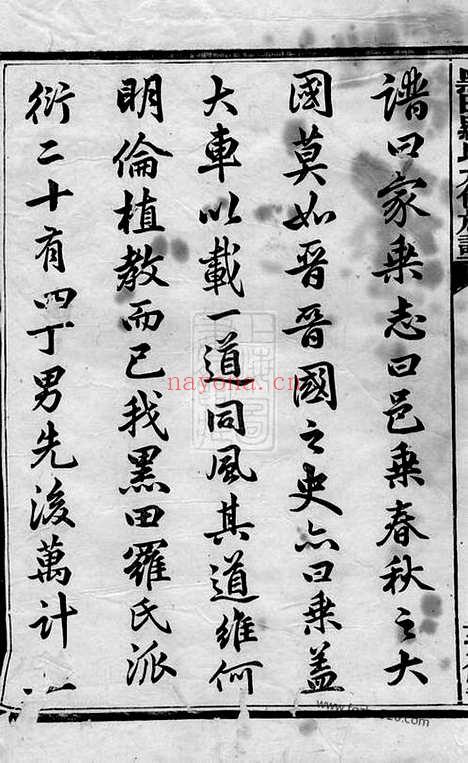 譜曰家乘志曰邑乘春秋之大
國莫如晉晉國之史亦曰乘蓋
大車以載一道同風其道維何
明倫植教而已我黑田羅氏派
衍二十有四丁男先後萬計
nayona.cn